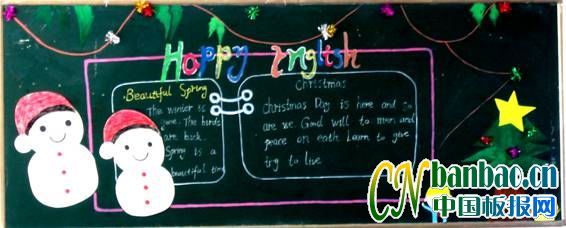 Happy English
Beautiful Spring
The winter is
gone. The birds
are back.
Spring is a
beautiful time
Christmas
Christmas Day is here and so
are we. Good will to men and
peace on eath. Learn to give
try to live
CNbanbao.cn
中国板报网